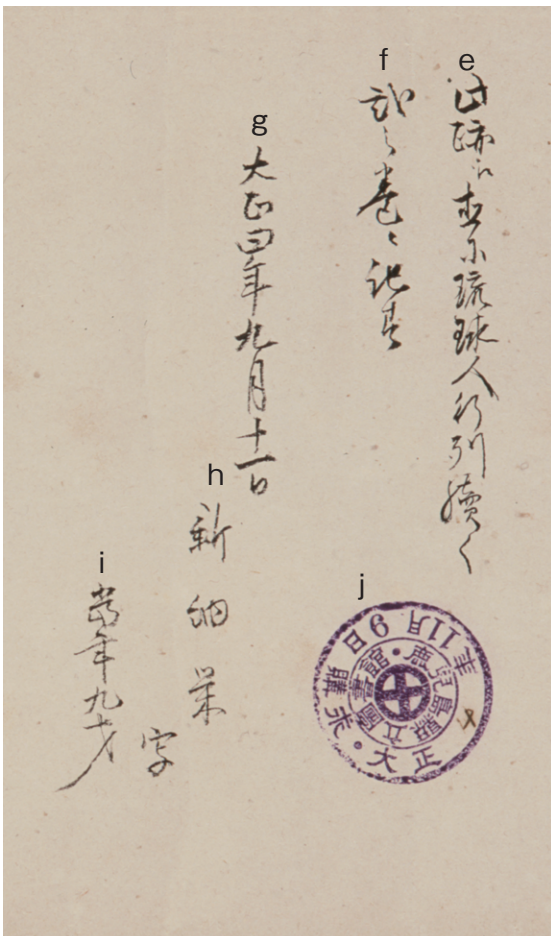 e
此跡ニ並ニ琉球人行列續く
f
弐之巻ニ記す
g
大正四年九月十一日
h
新納栄
i
當年九才
字
j
鹿兒島縣立圖書館・
大正 年11月9日 購求・